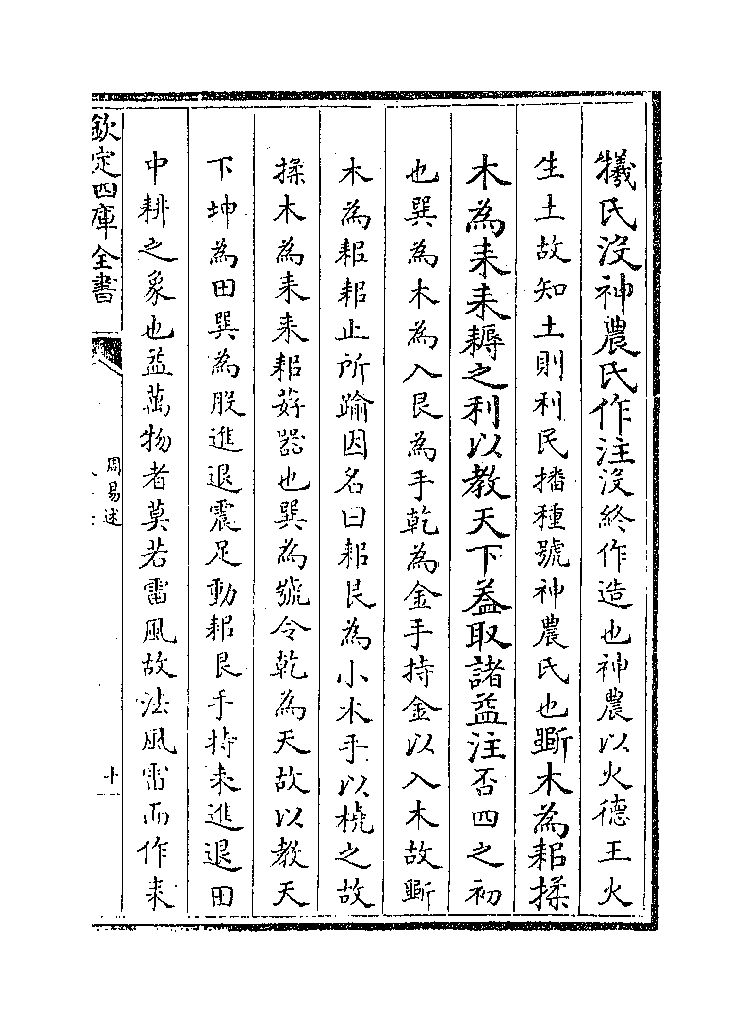 犧氏沒神農氏作注沒終作造也神農以火德王火
生土故知土則利民播種號神農氏也斲木為耜揉
木為耒耒耨之利以教天下蓋取諸益注否四之初
也巽為木為入艮為手乾為金手持金以入木故斲
木為耜耜止所踰因名曰耜艮為小木手以橈之故
揉木為耒耒耜葃器也巽為號令乾為天故以教天
下坤為田巽為股進退震足動耜艮手持耒進退田
中耕之象也益萬物者莫若雷風故法風雷而作耒
欽定四庫全書
周易述
十